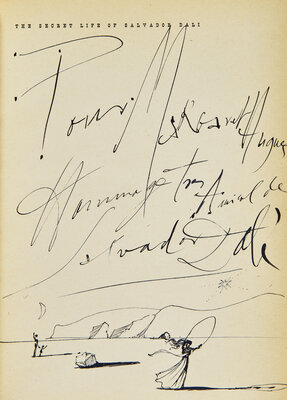 THE SECRET LIFE OF SALVADOR DALI
Pour M
Hugues
Hommage tres
Amical de
Salvador Dalí